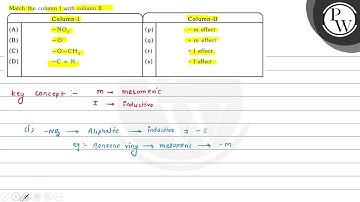 Match the column I with column II
Column-I Column-II
(A) –NO₂ (p) – m effect
(B) –O⁻ (q) + m effect
(C) –O–CH₃ (r) + I effect
(D) –C ≡ N (s) – I effect
PW
key concept :- m → mesomeric
I → inductive
(i) -NO₂ → Aliphatic → inductive → -I
eg :- Benzene ring → mesomeric → -m